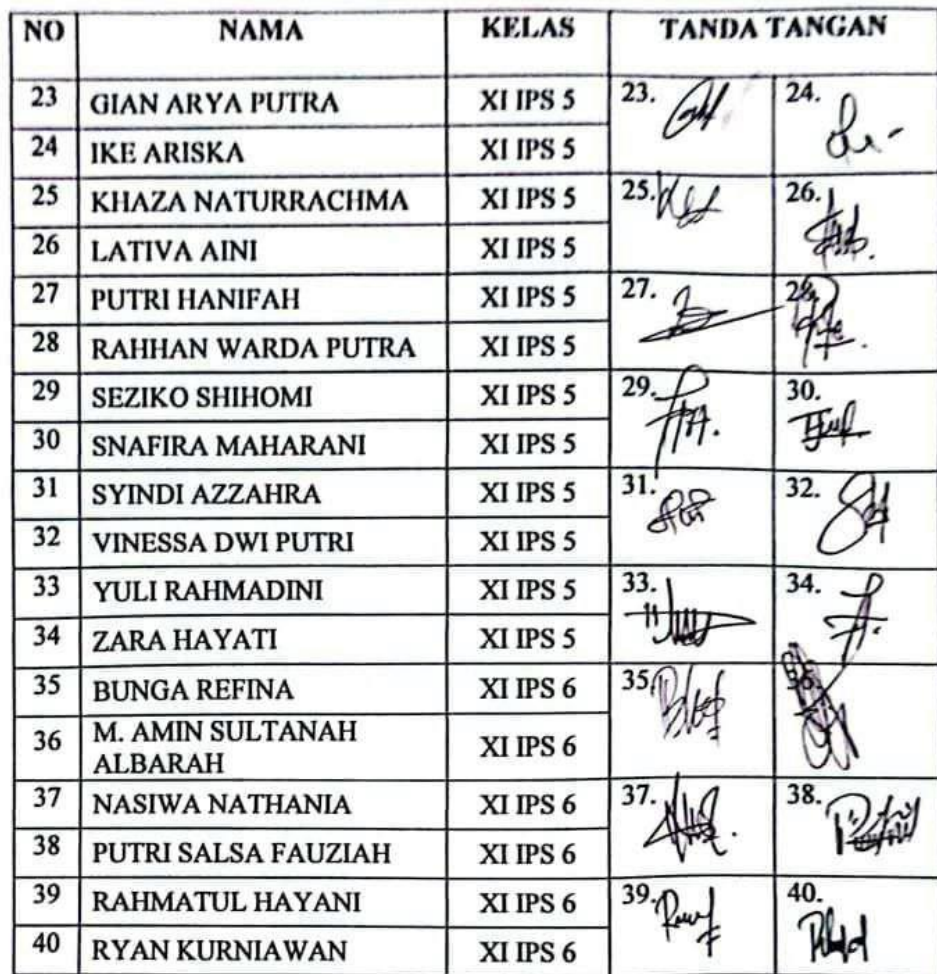 NO NAMA KELAS TANDA TANGAN
23 GIAN ARYA PUTRA XI IPS 5 23. 24.
24 IKE ARISKA XI IPS 5
25 KHAZA NATURRACHMA XI IPS 5 25. 26.
26 LATIVA AINI XI IPS 5
27 PUTRI HANIFAH XI IPS 5 27. 28.
28 RAHHAN WARDA PUTRA XI IPS 5
29 SEZIKO SHIHOMI XI IPS 5 29. 30.
30 SNAFIRA MAHARANI XI IPS 5
31 SYINDI AZZAHRA XI IPS 5 31. 32.
32 VINESSA DWI PUTRI XI IPS 5
33 YULI RAHMADINI XI IPS 5 33. 34.
34 ZARA HAYATI XI IPS 5
35 BUNGA REFINA XI IPS 6 35. 36.
36 M. AMIN SULTANAH
ALBARAH XI IPS 6
37 NASIWA NATHANIA XI IPS 6 37. 38.
38 PUTRI SALSA FAUZIAH XI IPS 6
39 RAHMATUL HAYANI XI IPS 6 39. 40.
40 RYAN KURNIAWAN XI IPS 6